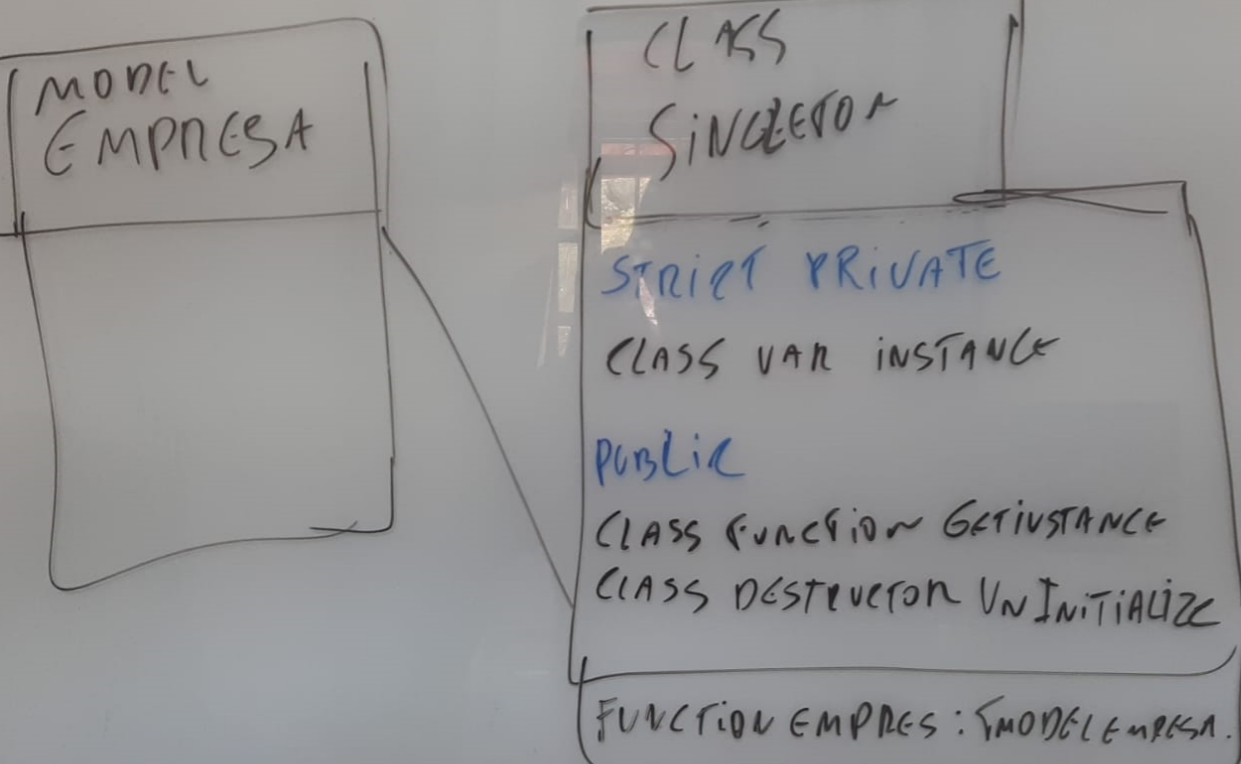 MODEL
EMPRESA
CLASS
SINGLETON
STRICT PRIVATE
CLASS VAR INSTANCE
PUBLIC
CLASS FUNCTION GETINSTANCE
CLASS DESTRUCTOR UNINITIALIZE
FUNCTION EMPRES : TMODELEMPRESA.